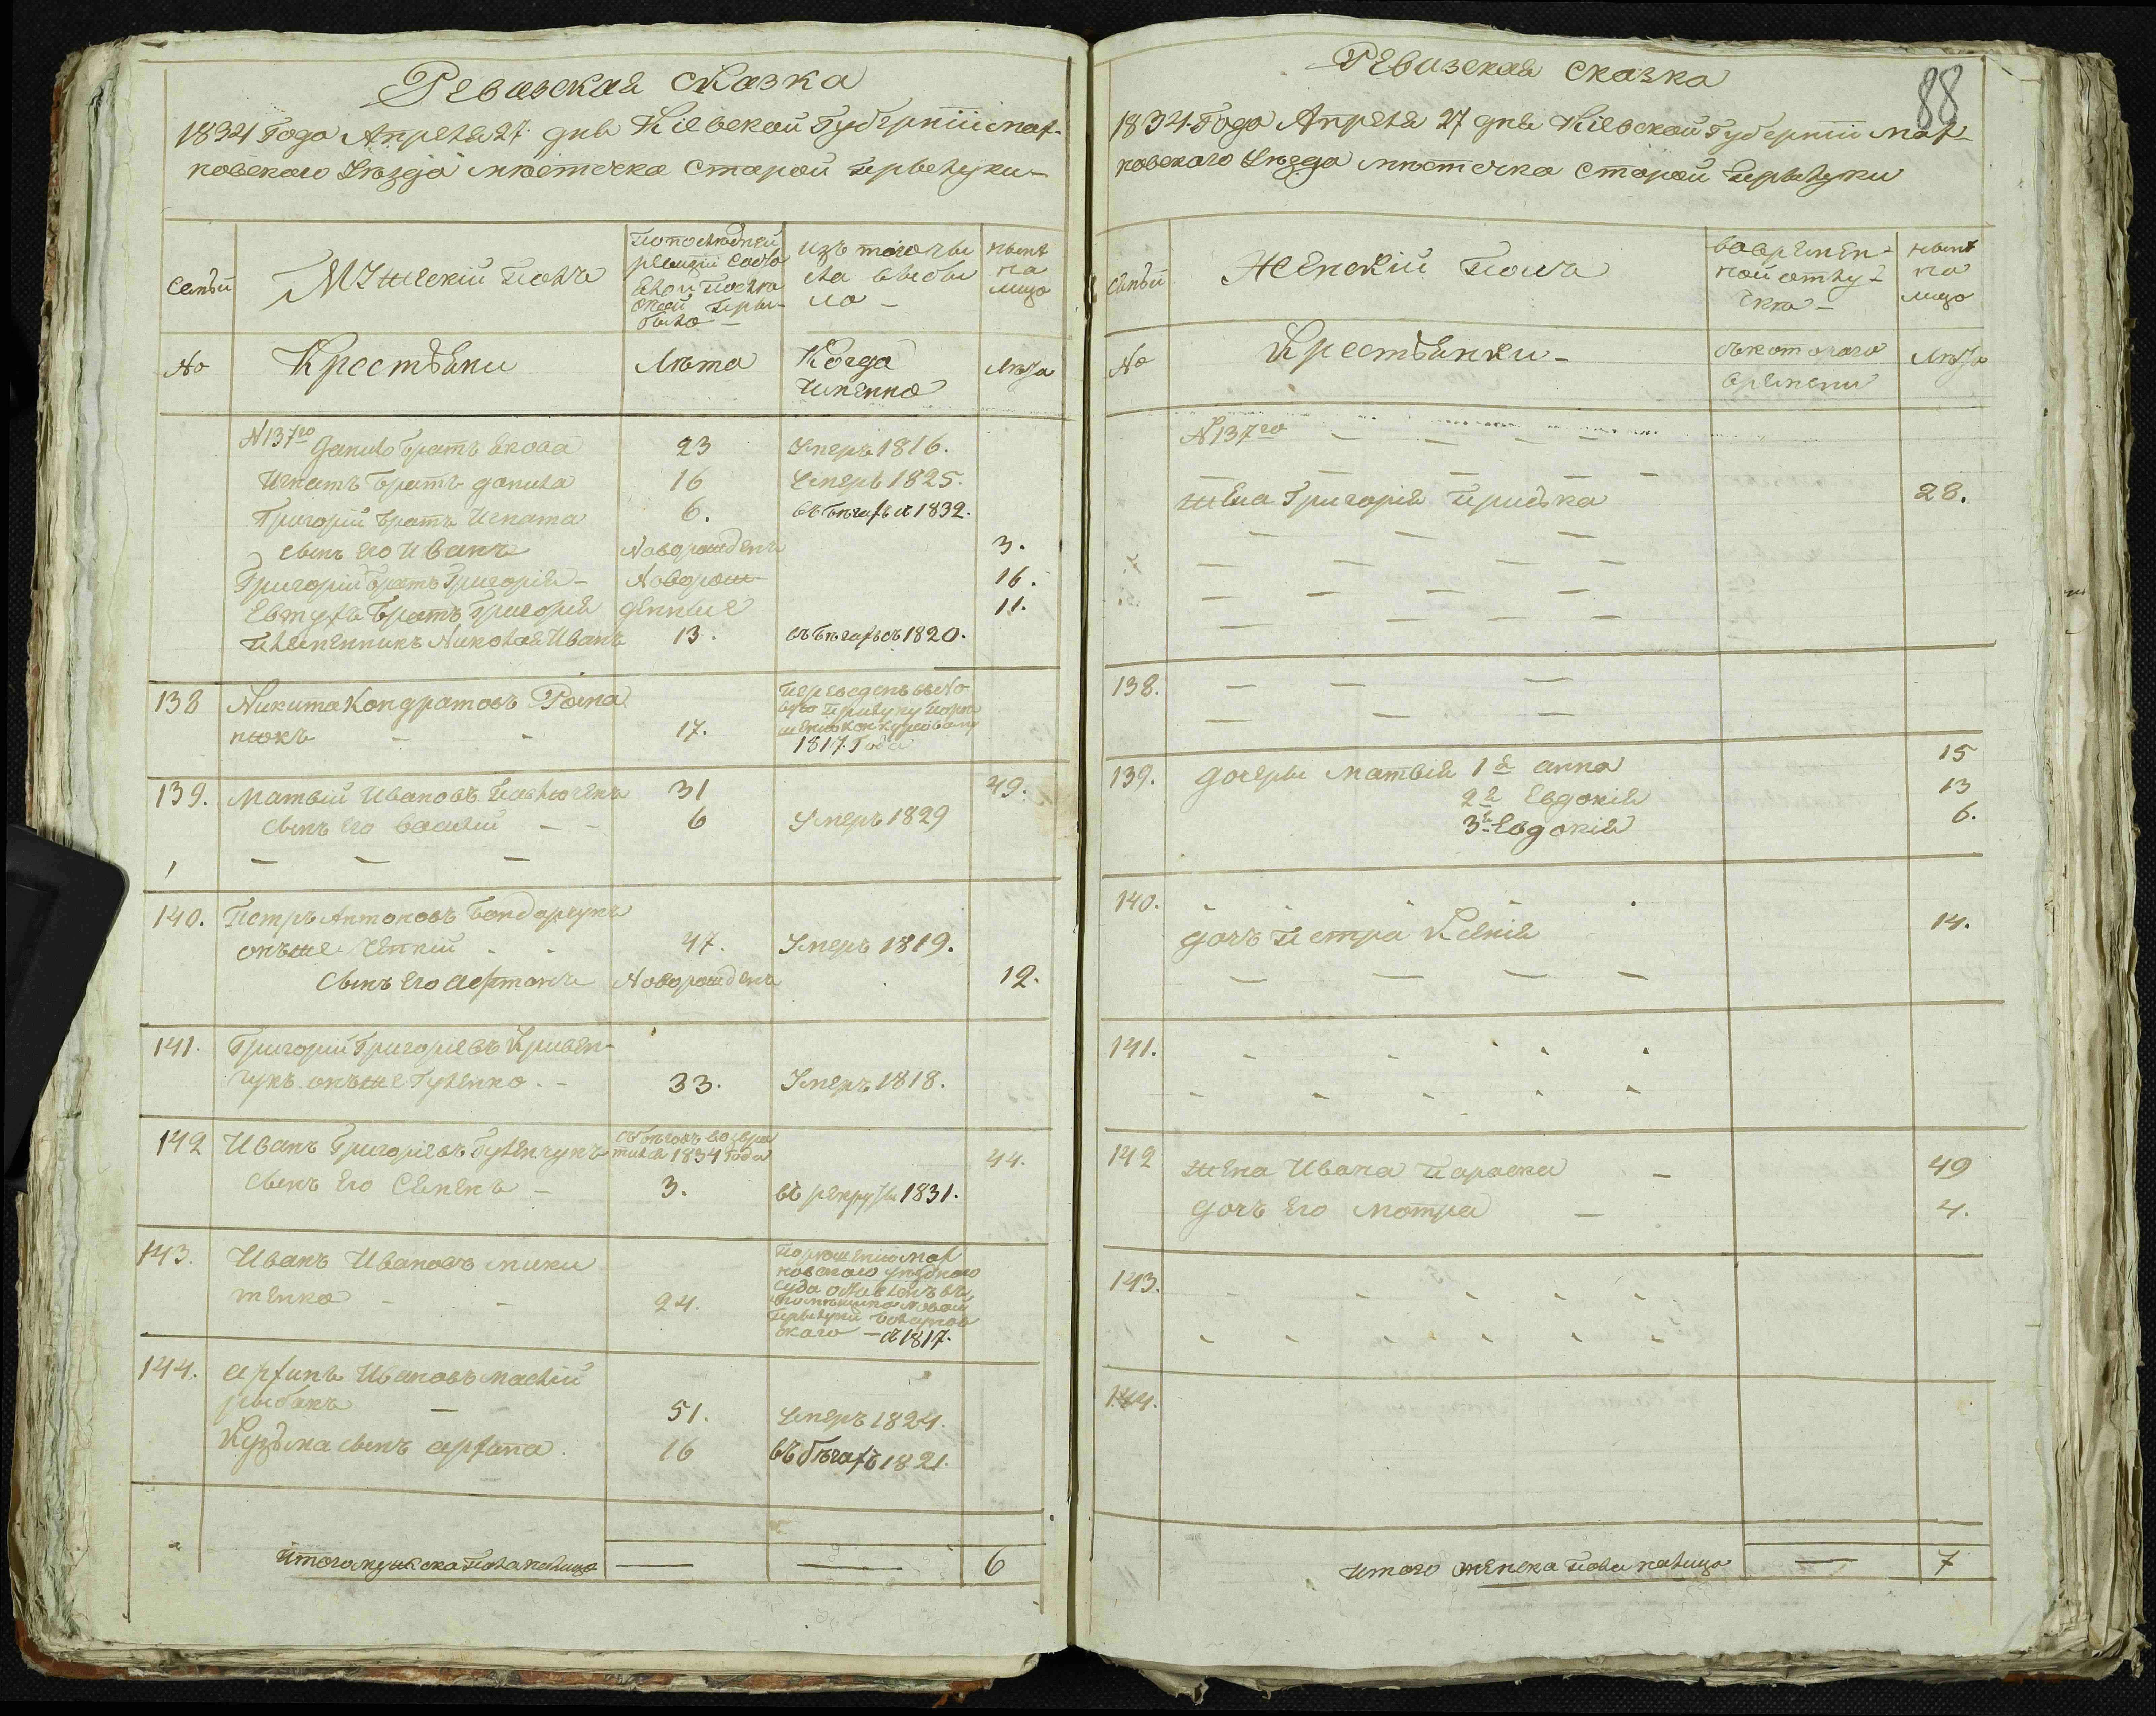 Ревизская сказка
1834 Года Апреля 27. дня Кіевской Губерніи Мах-
новского Уезда местечка Старой Прылуки-
Семьи
Мужескій полъ
По последней ревизіи состояло и после оной прыбыло
Изъ того числа выбыло
Ныне на лицо
No
Крестьяни
Лета
Когда именно
Лета
N137го Данило братъ Якова 23 Умеръ 1816.
Игнатъ братъ Данила 16 Умеръ 1825.
Григорій братъ Игната 6. въ бегахъ с 1832.
сынъ его Иванъ Новорожденъ 3.
Григорій братъ Григорія - Новорож- 16.
Евтухъ братъ Григорія денные 11.
Племенникъ Николая Иванъ 13. въ бегахъ съ 1820.
138 Никита Кондратовъ Рома
нюкъ - - 17. 1817. Года
139. Матвій Ивановъ Павлюченъ 31 49.
сынъ его Василій - - 6 Умеръ 1829
140. Петръ Антоновъ Бондарчукъ
онъже - - 47. Умеръ 1819.
Сынъ его Новорожденъ 12.
141. Григорій Григоріевъ Кривен-
чукъ онъже Гуленко. - 33. Умеръ 1818.
142 Иванъ Григоріевъ Гуленчукъ съ беговъ возвратился 1834 года 44.
сынъ его Семенъ - 3. въ рекруты 1831.
143. Иванъ Ивановъ Мики
тенко - - 24. По решению Мах
новского уездного
суда
Прылуки
ского - с 1817.
144. Архипъ Ивановъ Маслій
рыбакъ - 51. Умеръ 1824.
Кузьма сынъ Архипа. 16 въ бегахъ 1821.
Итого мужеска пола налицо 6
Ревизская сказка
88
1834. Года Апреля 27 дня Кіевской Губерніи Мах-
новского Уезда местечка Старой Прылуки
Семьи
Женскій полъ
Во времен-
ной отлу-
чке -
Ныне
на
лицо
No
Крестьянки -
съ которого
времени
Лета
N137го - - - -
жена Григорія Приська 28.
138. - - -
139. дочеры Матвія 1я Анна 15
2я Евдокія 13
3я Евдокія 6.
140.
дочъ Петра Ксенія 14.
141.
142 жена Ивана Параска - 49
дочъ его Мотря - 4.
143.
144.
итого женска пола налицо 7